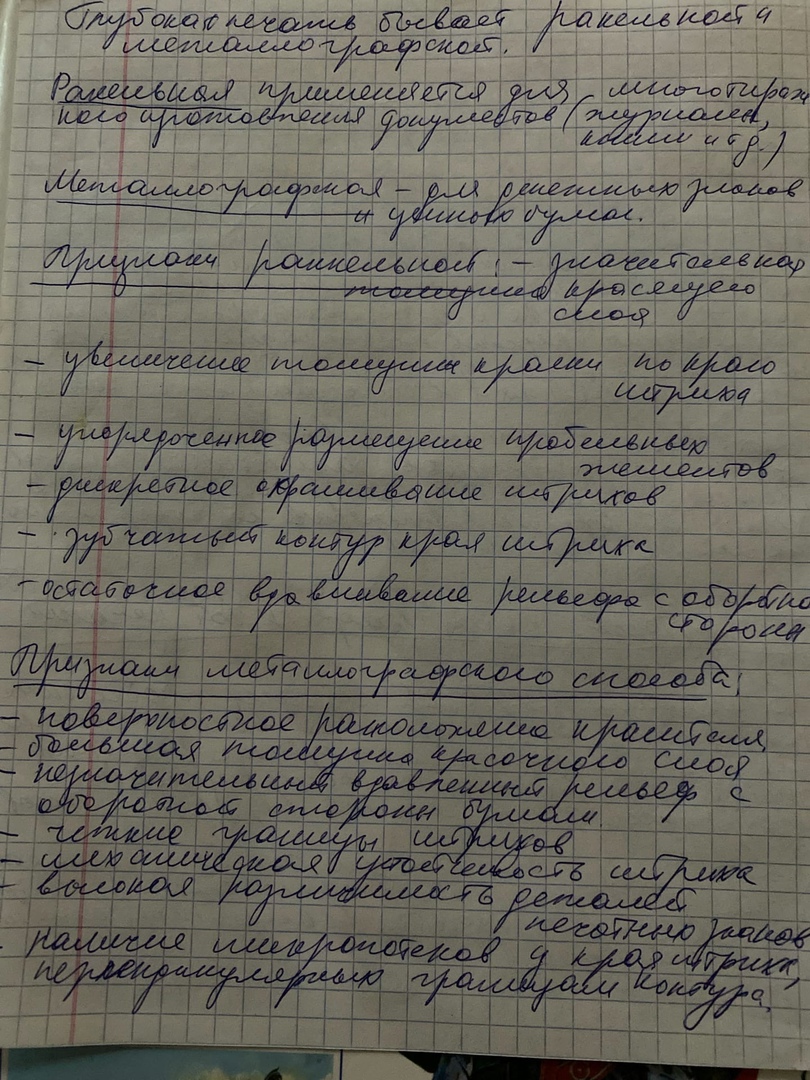 Глубокая печать бывает ракельной и
металлографской.
Ракельная применяется для многотираж
ного изготовления документов (журналы,
книги и тд.)
Металлографская - для денежных знаков
и ценных бумаг.
Признаки раккельной: - значительная
толщина красящего
слоя
- увеличение толщины краски по краю
штриха
- упорядоченное размещение пробельных
элементов
- дискретное окрашивание штрихов
- зубчатый контур края штриха
- остаточное вдавливание рельефа с оборотно
стороны
Признаки металлографского способа:
- поверхностное расположение красителя
- большая толщина красочного слоя
- незначительный вдавленный рельеф с
оборотной стороны бумаги
- четкие границы штрихов
- механическая устойчивость штриха
- высокая различимость деталей
печатных знаков
- наличие микропотеков у края штриха,
перпендикулярных границам контура.